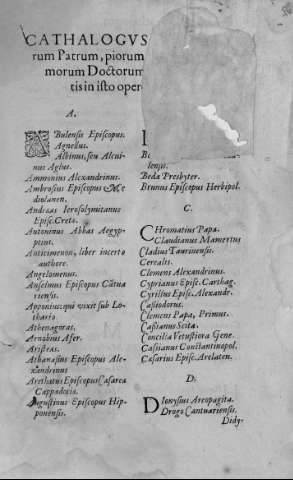 CATHALOGVS
rum Patrum, piorum
morum Doctorum
tis in isto oper
A.
ABulensis Episcopus.
Agnellus.
Albinus, seu Alcui-
nus Abbas.
Ammonius Alexandrinus.
Ambrosius Episcopus Me
diolanen.
Andreas Ierosolymitanus
Episc. Creta.
Antoninus Abbas Aegyp-
ptius.
Anticimenon, liber incerto
authore.
Angelomenus.
Anselmus Episcopus Cātua
riensis.
Apponius, qui vixit sub Lo-
thario
Athenagoras,
Arnobius Afer.
Aristeas.
Athanasius Episcopus Ale-
xandrinus
Arethatus Episcopus Cæsareæ
Cappadocia.
Augustinus Episcopus Hip-
ponensis.
lensis.
Beda Presbyter.
Brunus Episcopus Herbipol.
C.
CHromatius Papa.
Claudianus Mamertus
Cladius Taurinensis.
Cerealis.
Clemens Alexandrinus.
Cyprianus Episc. Carthag.
Cyrillus Episc. Alexandr.
Cassiodorus.
Clemens Papa, Primus.
Cassianus Scita.
Concilia Vetustiora Gene.
Cassianus Constantinopol.
Cæsarius Episc. Arelaten.
D.
DIonysius Areopagita.
Drogo Cantuariensis.
Didy-